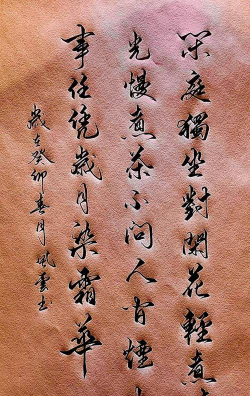 闲庭独坐對闲花輕煮
光慢煮茶不问人间煙
事任凭歲月染霜華
歲在癸卯春月風雲书